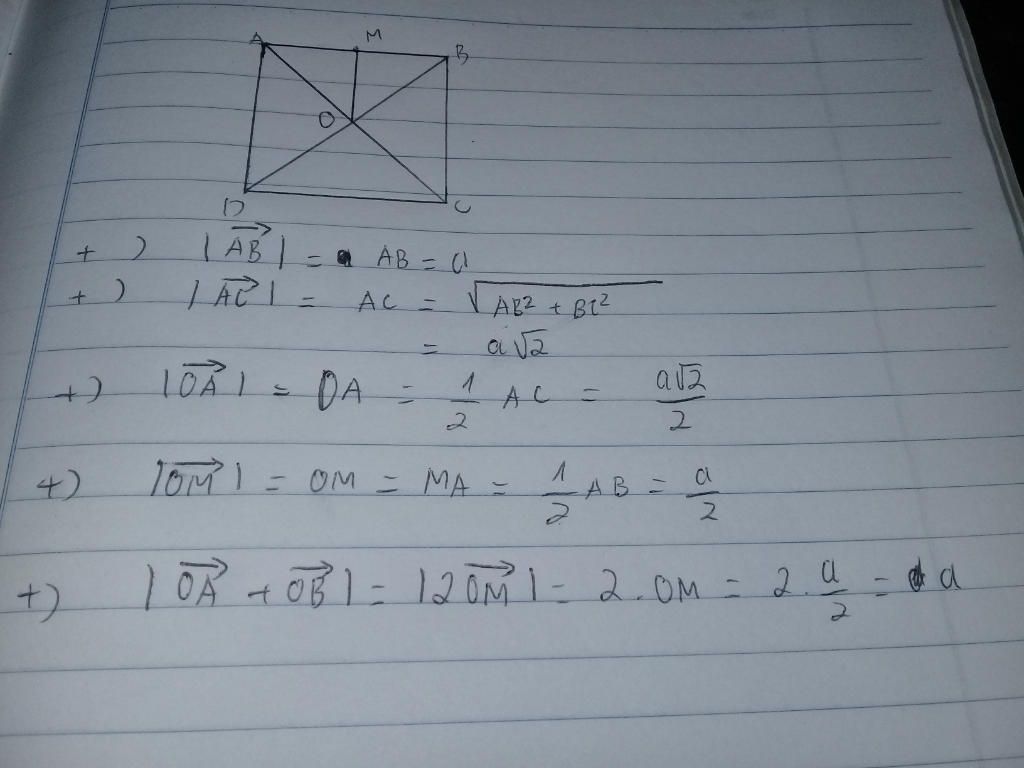 A M B
O
D C
+) |\overrightarrow{AB}| = AB = a
+) |\overrightarrow{AC}| = AC = \sqrt{AB^2 + BC^2}
= a\sqrt{2}
+) |\overrightarrow{OA}| = OA = \frac{1}{2} AC = \frac{a\sqrt{2}}{2}
+) |\overrightarrow{OM}| = OM = MA = \frac{1}{2} AB = \frac{a}{2}
+) |\overrightarrow{OA} + \overrightarrow{OB}| = |2\overrightarrow{OM}| = 2.OM = 2.\frac{a}{2} = a